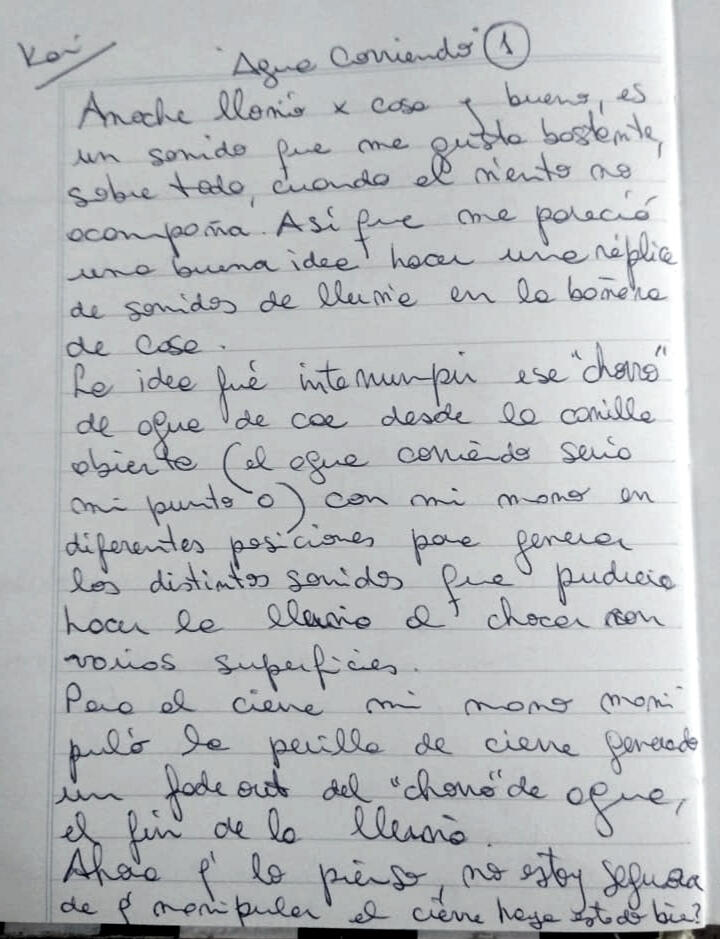 Kai
"Agua Corriendo" 1
Anoche llovió x casa y bueno, es
un sonido que me gusta bastante,
sobre todo, cuando el viento no
acompaña. Así que me pareció
una buena idea hacer una réplica
de sonidos de lluvia en la bañera
de casa.
La idea fué interrumpir ese "chorro"
de agua de cae desde la canilla
abierta (el agua corriendo sería
mi punto 0) con mi mano en
diferentes posiciones para generar
los distintos sonidos que pudiera
hacer la lluvia al chocar con
varias superficies.
Para el cierre mi mano mani
puló la perilla de cierre generado
un fade out del "chorro" de agua,
el fin de la lluvia.
Ahora q' lo pienso, no estoy segura
de q' manipular el cierre haya estado bien?